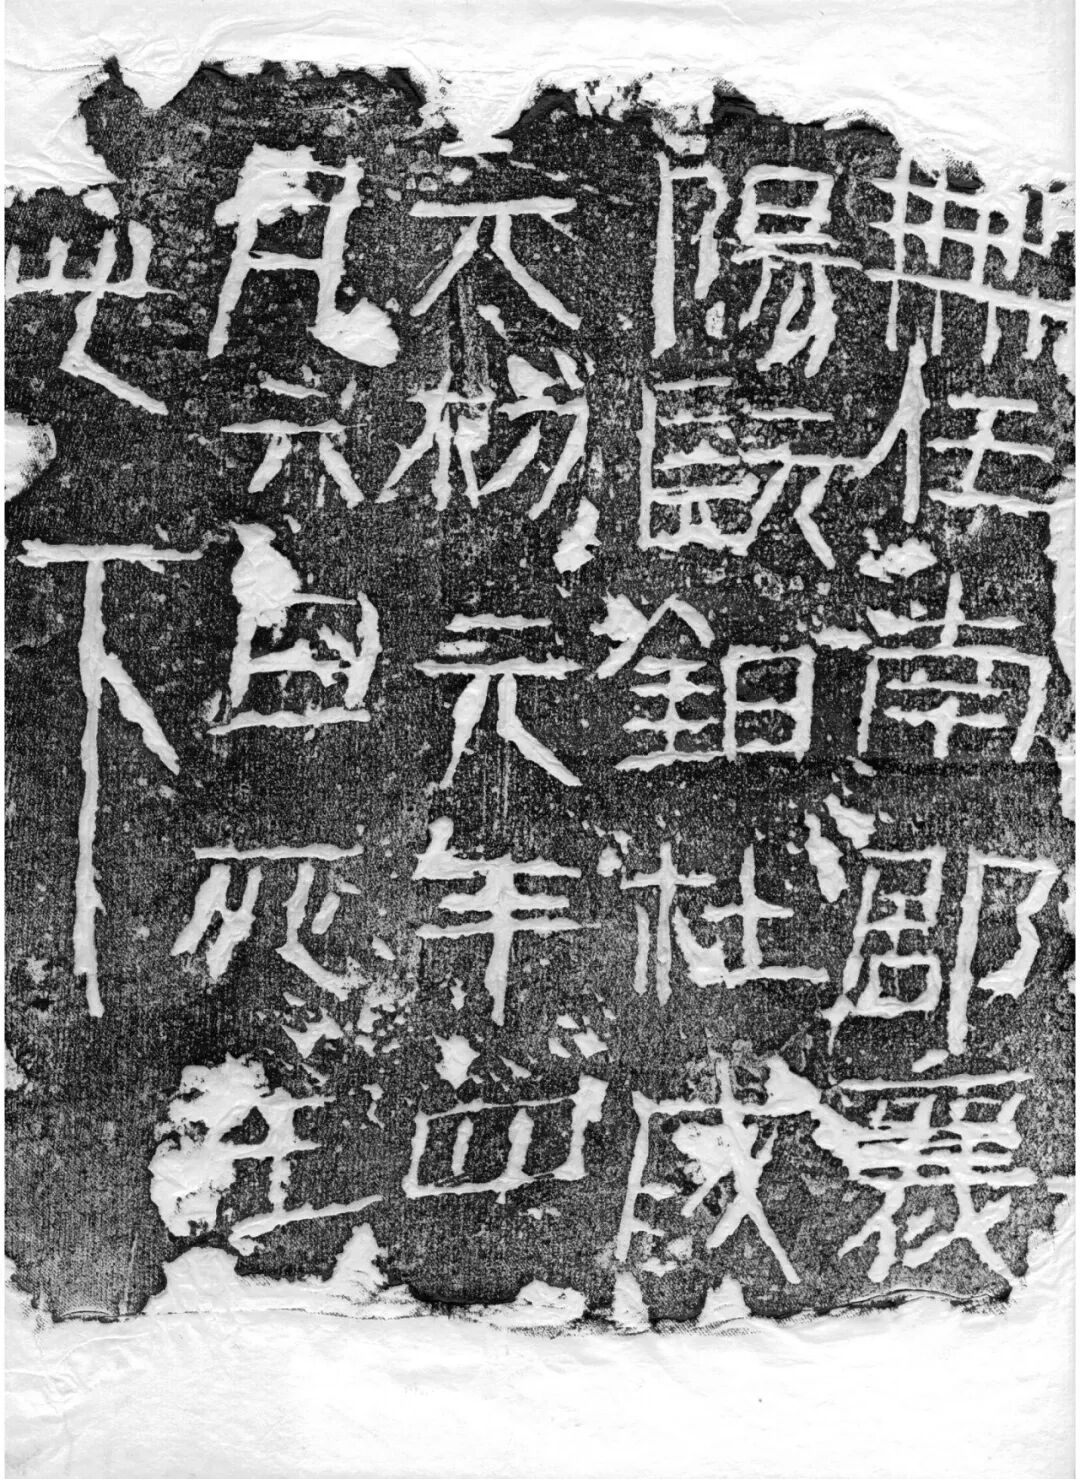 無任南郡襄
陽髡鉗杜成
元初元年四
月六日死在
此下